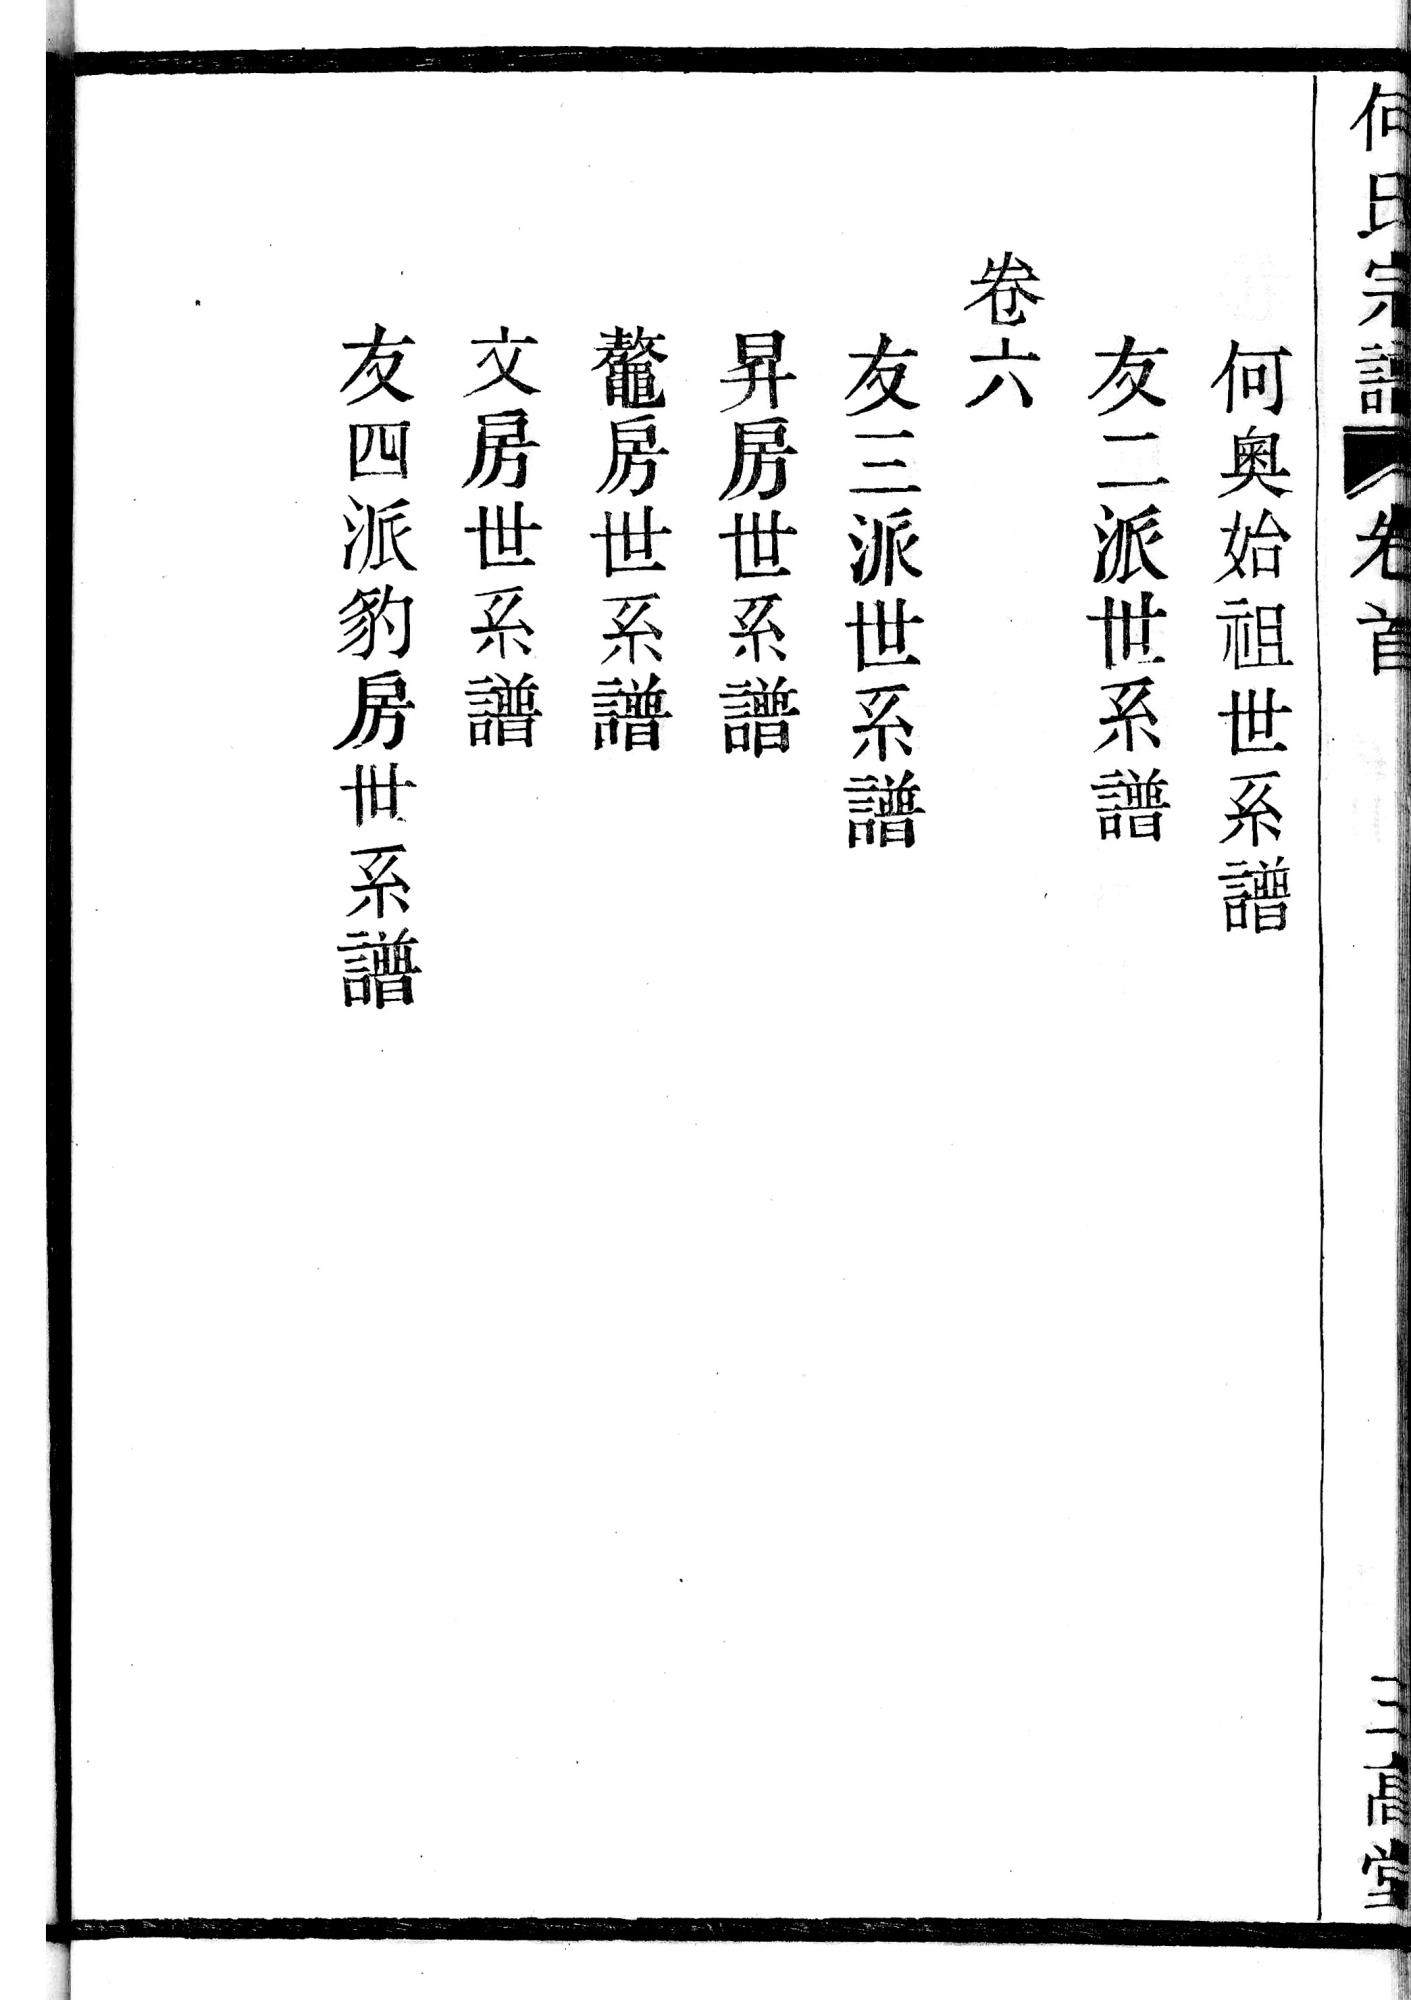 何氏宗譜 卷首 三高堂
何奧始祖世系譜
友二派世系譜
卷六
友三派世系譜
昇房世系譜
鼇房世系譜
文房世系譜
友四派豹房世系譜